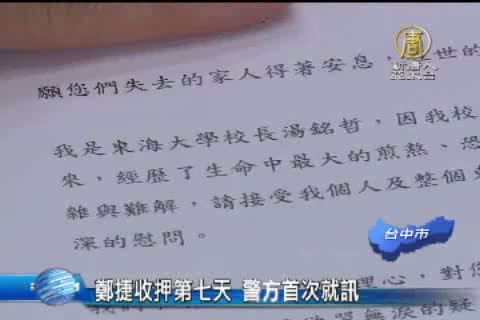 唐
新唐人
亞太台
願您們失去的家人得著安息，
世的
我是東海大學校長湯銘哲，因我校
來，經歷了生命中最大的煎熬、恐
雜與難解，請接受我個人及整個東
深的慰問。
台中市
理心，對您
無淚的疑
鄭捷收押第七天 警方首次就訊